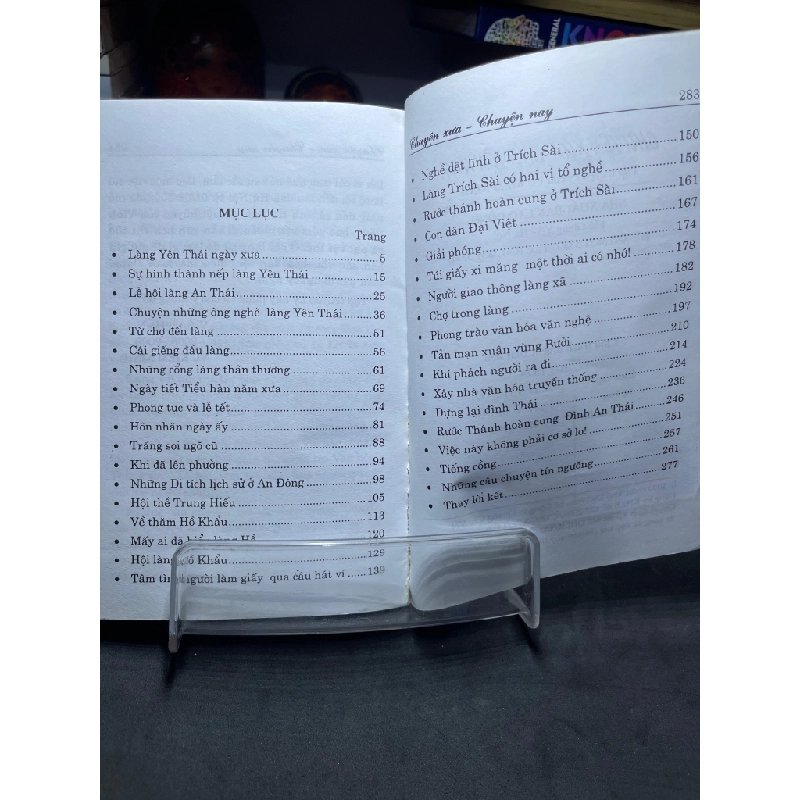 GENERAL
KNO
MỤC LỤC
Trang
• Làng Yên Thái ngày xưa 5
• Sự hình thành nếp làng Yên Thái 15
• Lễ hội làng An Thái 25
• Chuyện những ông nghè làng Yên Thái 36
• Từ chợ đến làng 51
• Cái giếng đầu làng 56
• Những rồng làng thân thương 61
• Ngày tiết Tiểu hàn năm xưa 69
• Phong tục và lễ tết 74
• Hôn nhân ngày ấy 81
• Trăng soi ngõ cũ 88
• Khi đã lên phường 94
• Những Di tích lịch sử ở An Đông 98
• Hội thề Trung Hiếu 105
• Về thăm Hồ Khẩu 113
• Mấy ai đã hiểu làng Hồ 120
• Hội làng Hồ Khẩu 129
• Tâm tình người làm giấy qua câu hát ví 139
283
Chuyện xưa - Chuyện nay
• Nghề dệt lĩnh ở Trích Sài 150
• Làng Trích Sài có hai vị tổ nghề 156
• Rước thánh hoàn cung ở Trích Sài 161
• Con dân Đại Việt 167
• Giải phóng 174
• Túi giấy xi măng một thời ai có nhớ! 178
• Người giao thông làng xã 182
• Chợ trong làng 192
• Phong trào văn hóa văn nghệ 197
• Tản mạn xuân vùng Bưởi 210
• Khí phách người ra đi 214
• Xây nhà văn hóa truyền thống 224
• Dựng lại đình Thái 236
• Rước Thánh hoàn cung Đình An Thái 246
• Việc này không phải cơ sở lo! 251
• Tiếng cồng 257
• Những câu chuyện tín ngưỡng 261
• Thay lời kết 277